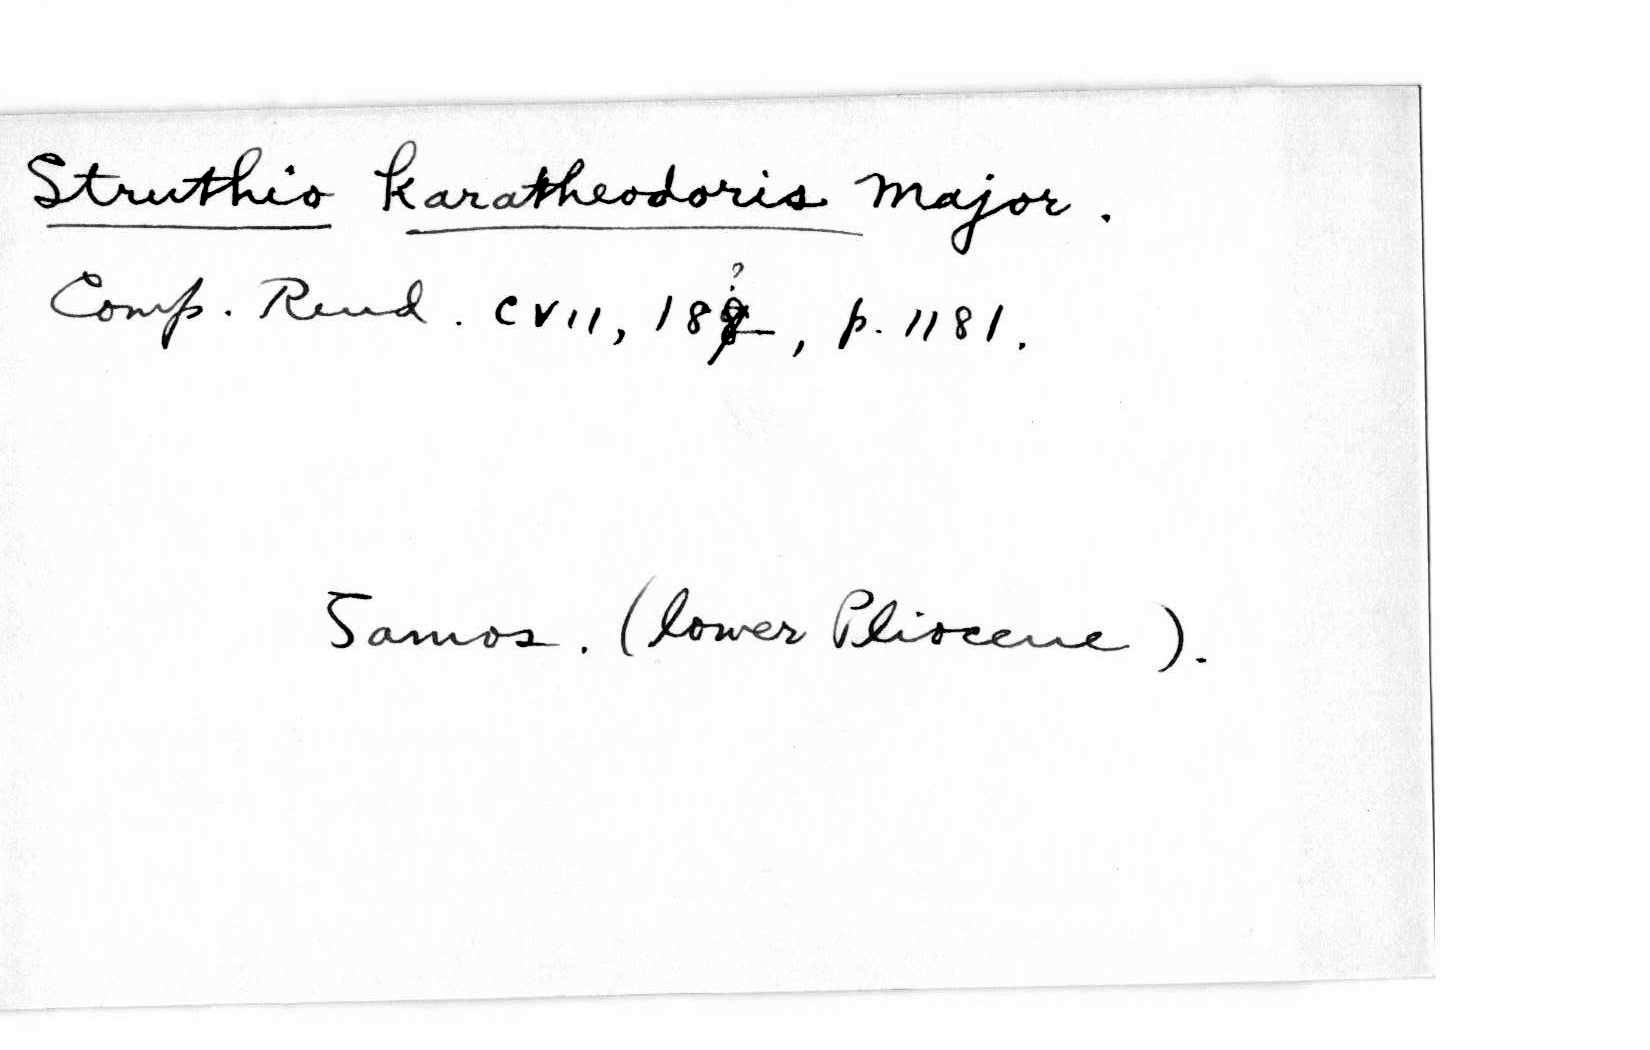 Struthio karatheodoris Major.
Comp. Rend. CVII, 188?, p. 1181.
Samos. (lower Pliocene).